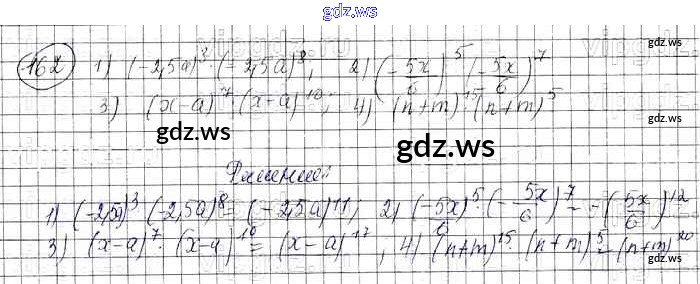 gdz.ws
162 1) (-2,5a)³·(-2,5a)⁸; 2) (-5x/6)⁵·(-5x/6)⁷
gdz.ws
3) (x-a)⁷·(x-a)¹⁰; 4) (n+m)¹⁵·(n+m)⁵
gdz.ws
gdz.ws
Решение:
1) (-2,5a)³·(-2,5a)⁸=(-2,5a)¹¹; 2) (-5x/6)⁵·(-5x/6)⁷=-(5x/6)¹²
3) (x-a)⁷·(x-a)¹⁰=(x-a)¹⁷; 4) (n+m)¹⁵·(n+m)⁵=(n+m)²⁰
gdz.ws
gdz.ws